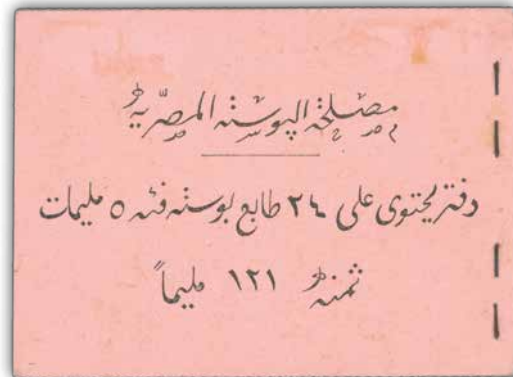 مصلحة البوسته المصرية
دفتر يحتوى على ٢٤ طابع بوسته فئه ٥ مليمات
ثمنه ١٢١ مليماً